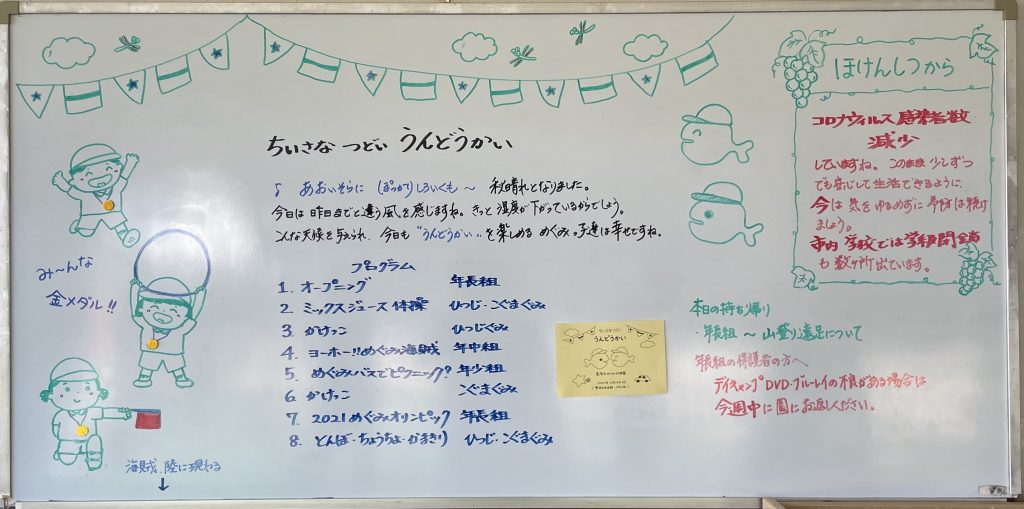 ちいさな つどい うんどうかい
♪ あおいそらに ぽっかり しろいくも〜 秋晴れとなりました。
今日は昨日までと違う風を感じますね。きっと湿度が下がっているからでしょう。
こんな天候を与えられ、今日も“うんどうかい”を楽しめる めぐみっ子達は幸せですね。
プログラム
1. オープニング 年長組
2. ミックスジュース体操 ひつじ・こぐまぐみ
3. かけっこ ひつじぐみ
4. ヨーホー!!めぐみ海賊 年中組
5. めぐみバスでピクニック? 年少組
6. かけっこ こぐまぐみ
7. 2021めぐみオリンピック 年長組
8. とんぼ・ちょうちょ・かまきり ひつじ・こぐまぐみ
み〜んな
金メダル!!
海賊、陸に現わる
↓
うんどうかい
ほけんしつから
コロナウィルス 感染者数
減少
していますね。このまま 少しずつ
でも安心して生活できるように、
今は 気をゆるめずに 予防は続け
ましょう。
市内 学校では学級閉鎖
も 数ヶ所 出ています。
本日の持ち帰り
・年長組 〜 山登り遠足について
年長組の保護者の方へ
デイキャンプDVD・ブルーレイの不良がある場合は
今週中に園にお返しください。